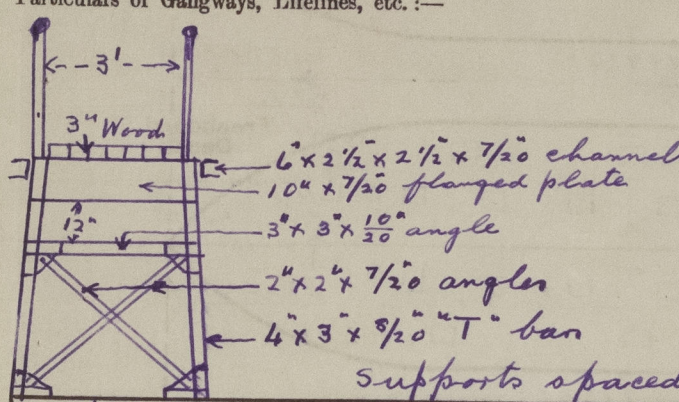 Particulars of Gangways, Lifelines, etc. :—
3'
3" Wood
6" x 2 1/2" x 2 1/2" x 7/20" channel
10" x 7/20" flanged plate
12"
3" x 3" x 10/20" angle
2" x 2" x 7/20" angles
4" x 3" x 8/20 "T" bars
Supports spaced